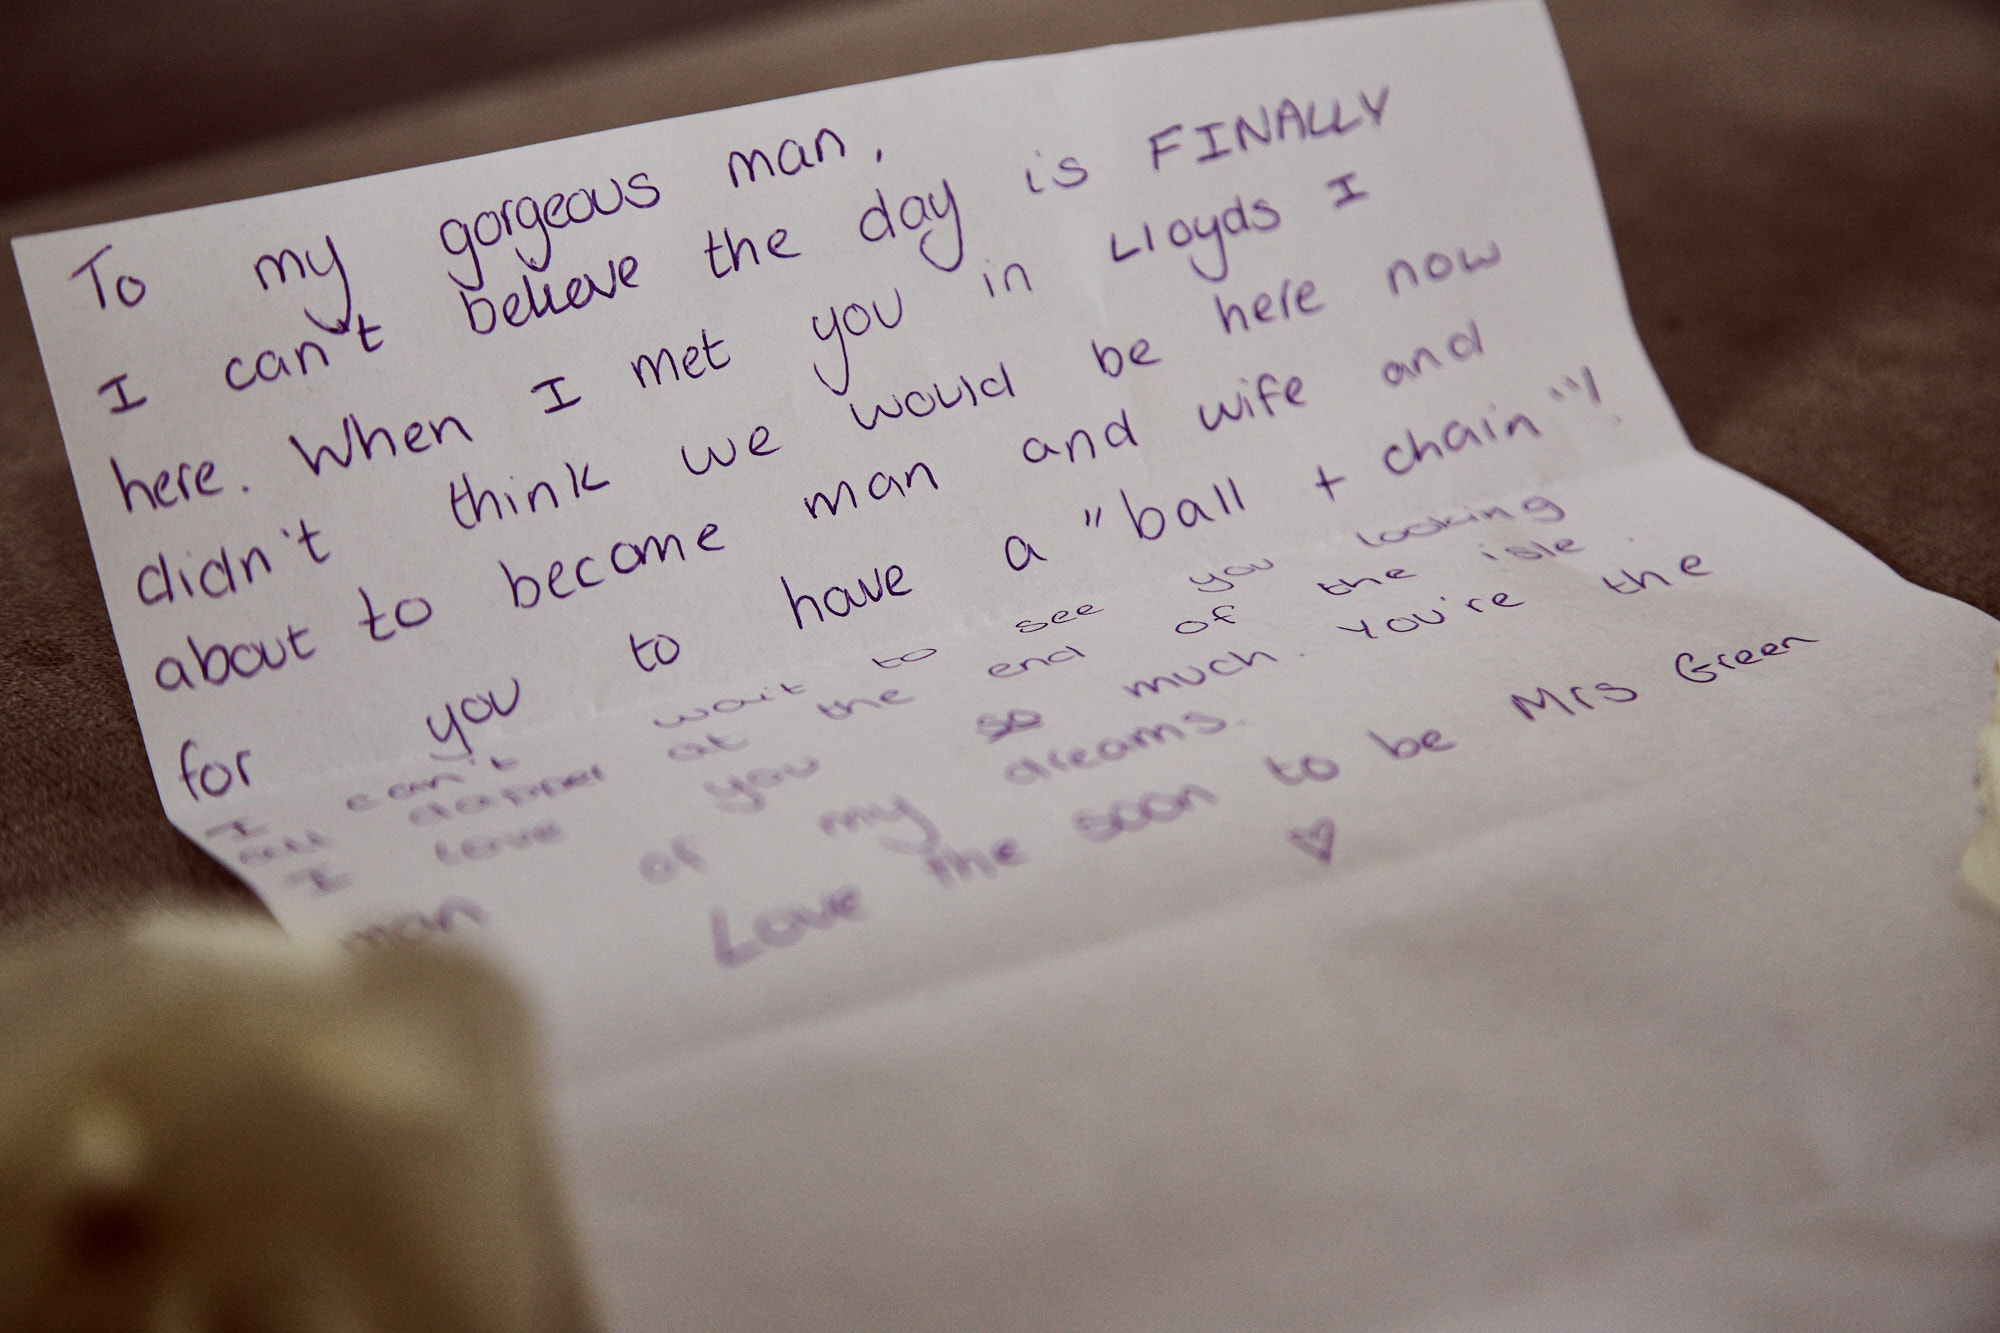 To my gorgeous man,
I can't believe the day is FINALLY
here. When I met you in Lloyds I
didn't think we would be here now
about to become man and wife and
for you to have a "ball + chain"!
I can't wait to see you looking
all dapper at the end of the isle.
I love you so much. You're the
man of my dreams.
Love the soon to be Mrs Green
♡